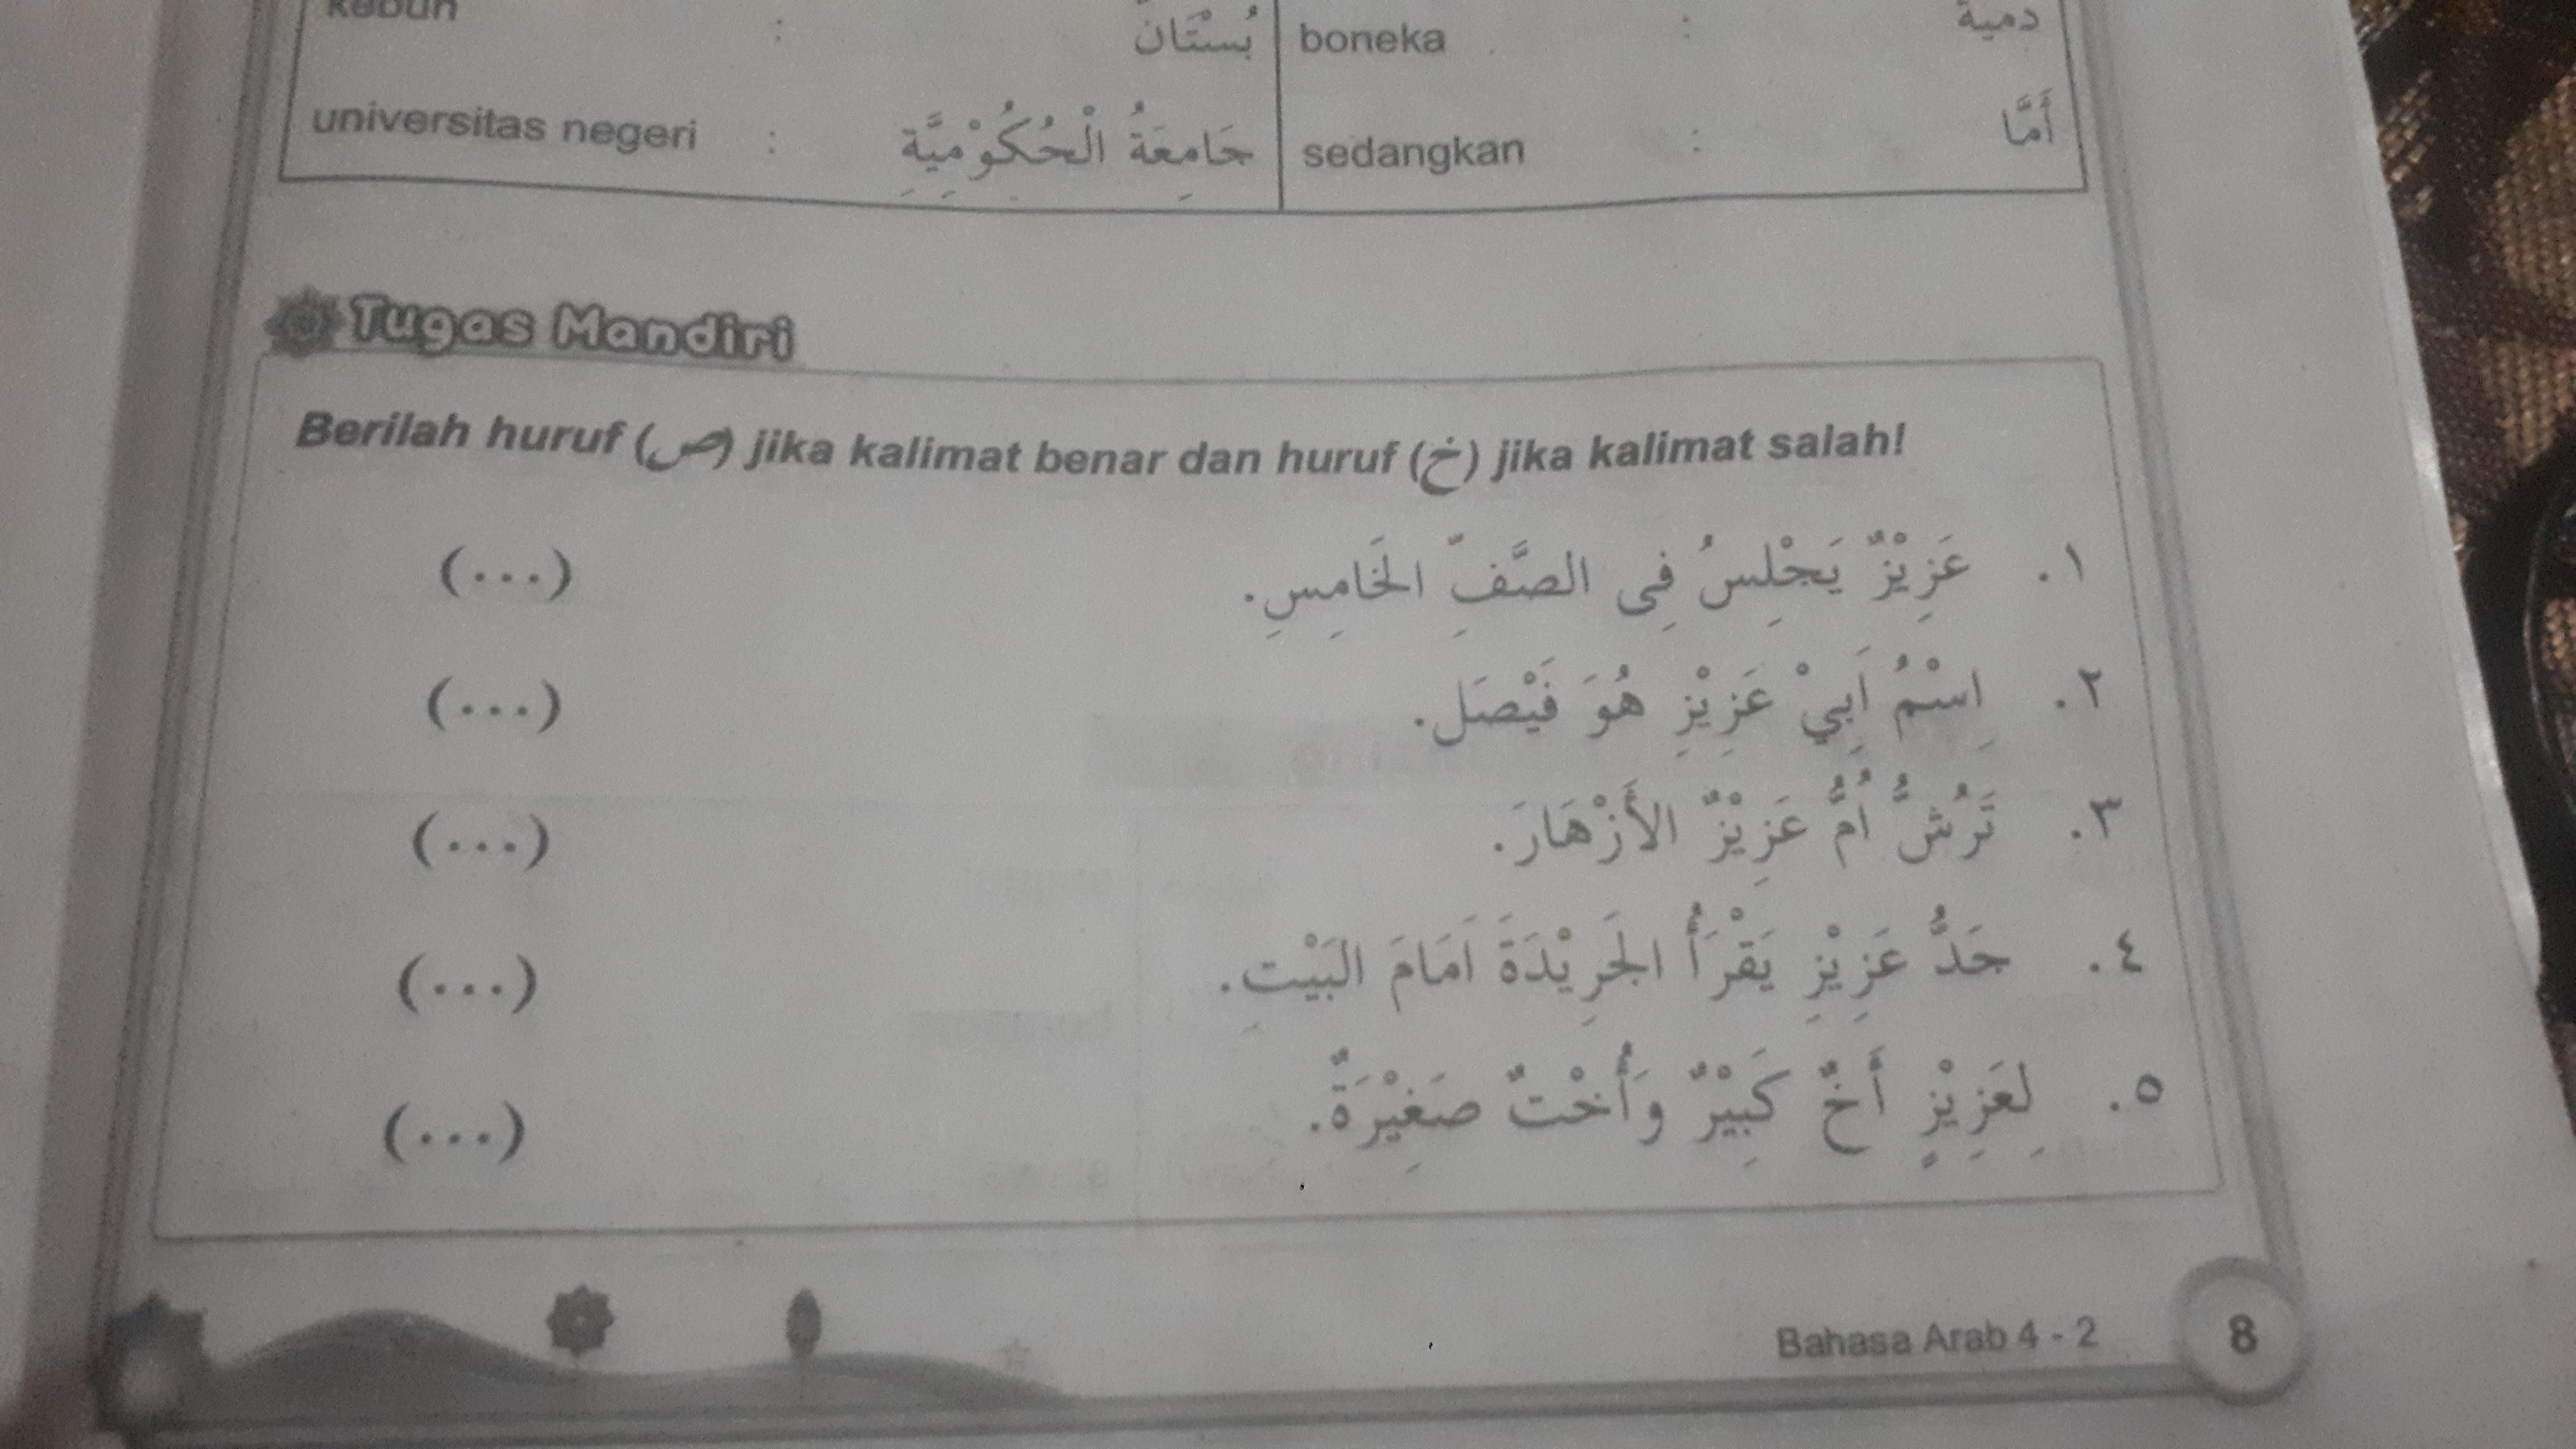 kebun : بُسْتَانٌ boneka : دمية
universitas negeri : جَامِعَةُ الْحُكُوْمِيَّةِ sedangkan : أَمَّا
Tugas Mandiri
Berilah huruf (ص) jika kalimat benar dan huruf (خ) jika kalimat salah!
١. عَزِيْزٌ يَجْلِسُ فِى الصَّفِّ الخَامِسِ. (...)
٢. اِسْمُ اَبِيْ عَزِيْزِ هُوَ فَيْصَل. (...)
٣. تَرُشُّ اُمُّ عَزِيْزٌ الأَزْهَارَ. (...)
٤. حَدُّ عَزِيْزِ يَقْرَأُ الجَرِيْدَةَ اَمَامَ البَيْتِ. (...)
٥. لِعَزِيْزٍ أَخٌ كَبِيْرٌ وَأُخْتٌ صَغِيْرَةٌ. (...)
Bahasa Arab 4 - 2
8